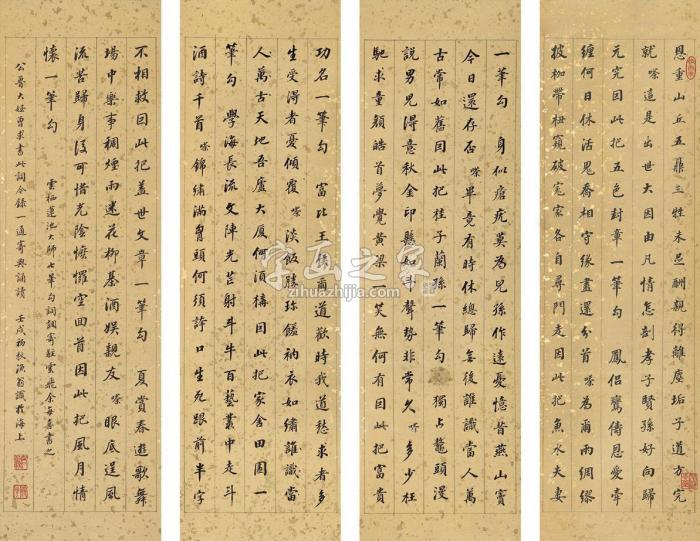 恩重山丘五鼎三牲未足酬親得離塵垢子道方完
就嗏這是出世大因由凡情怎剖孝子賢孫好向歸
元究因此把五色封章一筆勾　鳳侶鸞儔恩愛牽
纏何日休活鬼喬相守緣盡還分首嗏為爾兩綢繆
披枷帶杻窺破冤家各自尋門走因此把魚水夫妻
一筆勾　身似瘡疣莫為兒孫作遠憂憶昔燕山竇
今日還存否嗏畢竟有時休總歸無後誰識當人萬
古常如舊因此把桂子蘭孫一筆勾　獨占鰲頭漫
說男兒得意秋金印懸如斗聲勢非常久嗏多少枉
馳求童顏皓首夢覺黃梁一笑無何有因此把富貴
功名一筆勾　富比王侯爾道歡時我道愁求者多
生受得者憂傾覆嗏淡飯勝珍饈衲衣如繡誰識當
人萬古天地吾廬大厦何須構因此把家舍田園一
筆勾　學海長流文陣光芒射斗牛百藝叢中走斗
酒詩千首嗏錦繡滿胷頭何須誇口生死跟前半字
不相救因此把蓋世文章一筆勾　夏賞春遊歌舞
場中樂事稠煙雨迷花柳棊酒娛親友嗏眼底逞風
流苦歸身後可惜光陰懡㦬空回首因此把風月情
懷一筆勾
雲栖蓮池大師七筆勾詞調寄駐雲飛余每喜書之
公魯大姪曾求書此詞今錄一通寄與誦讀　壬戌初秋漁翁識於海上
字画之家
zihuazhijia.com